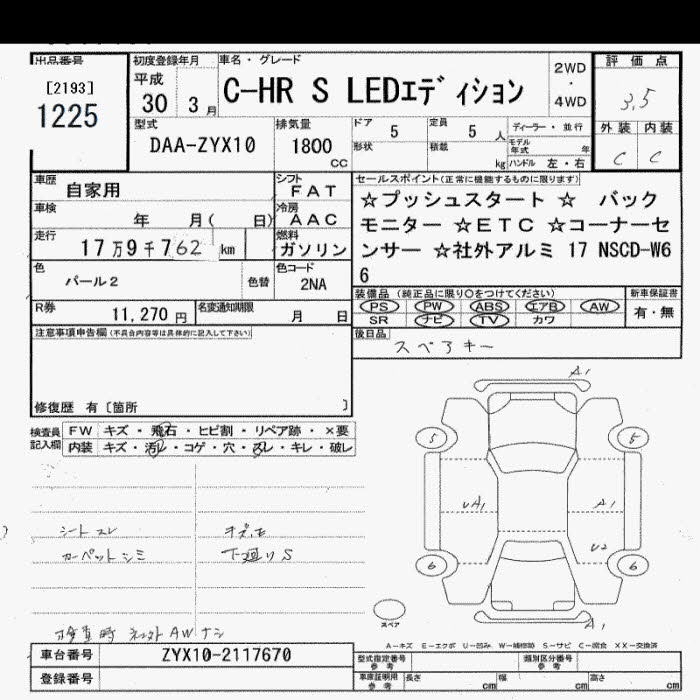 出品番号
[2193]
1225
初度登録年月
平成
30 3 月
車名・グレード
C-HR S LEDエディション
2WD
・
4WD
評価点
3.5
外装 内装
C C
型式
DAA-ZYX10
排気量
1800
cc
ドア 5
定員 5 人
形状
積載 kg
ディーラー・並行
モデル年式 年
ハンドル 左・右
車歴
自家用
シフト
FAT
車検
年 月( 日)
冷房
AAC
走行
17万9千762 km
燃料
ガソリン
色
パール2
色替
色コード
2NA
R券
11,270 円
名変通知期限
月 日
セールスポイント(正常に機能するものに限ります)
☆プッシュスタート ☆ バック
モニター ☆ETC ☆コーナーセ
ンサー ☆社外アルミ 17 NSCD-W6
6
装備品(純正品に限り○をつけてください)
PS PW ABS エアB AW
SR ナビ TV カワ
新車保証書
有・無
後日品
スペアキー
注意事項申告欄(不具合内容等は具体的に記入して下さい)
修復歴 有〔箇所 〕
検査員記入欄
FW キズ・飛石・ヒビ割・リペア跡・×要
内装 キズ・汚レ・コゲ・穴・スレ・キレ・破レ
シートスレ
カーペットシミ
下廻りS
A1
5
5
UA1
A1
U2
6
6
スペア
A1
A−キズ E−エクボ U−凹み W−補修跡 S−サビ C−腐食 XX−交換済
車台番号
ZYX10-2117670
登録番号
型式指定番号
参考
類別区分番号
参考
車庫証明用
参考
長さ cm
幅 cm
高さ cm